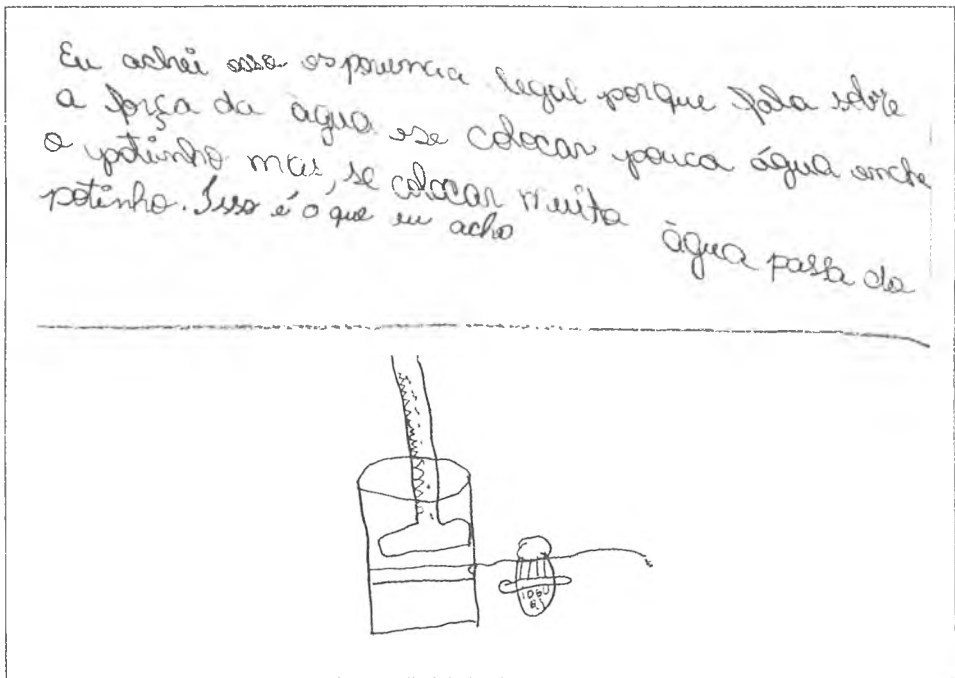 Eu achei essa esperiencia legal porque fala sobre
a força da água e se colocar pouca água enche
o potinho mas, se colocar muita água passa do
potinho. Isso é o que eu acho